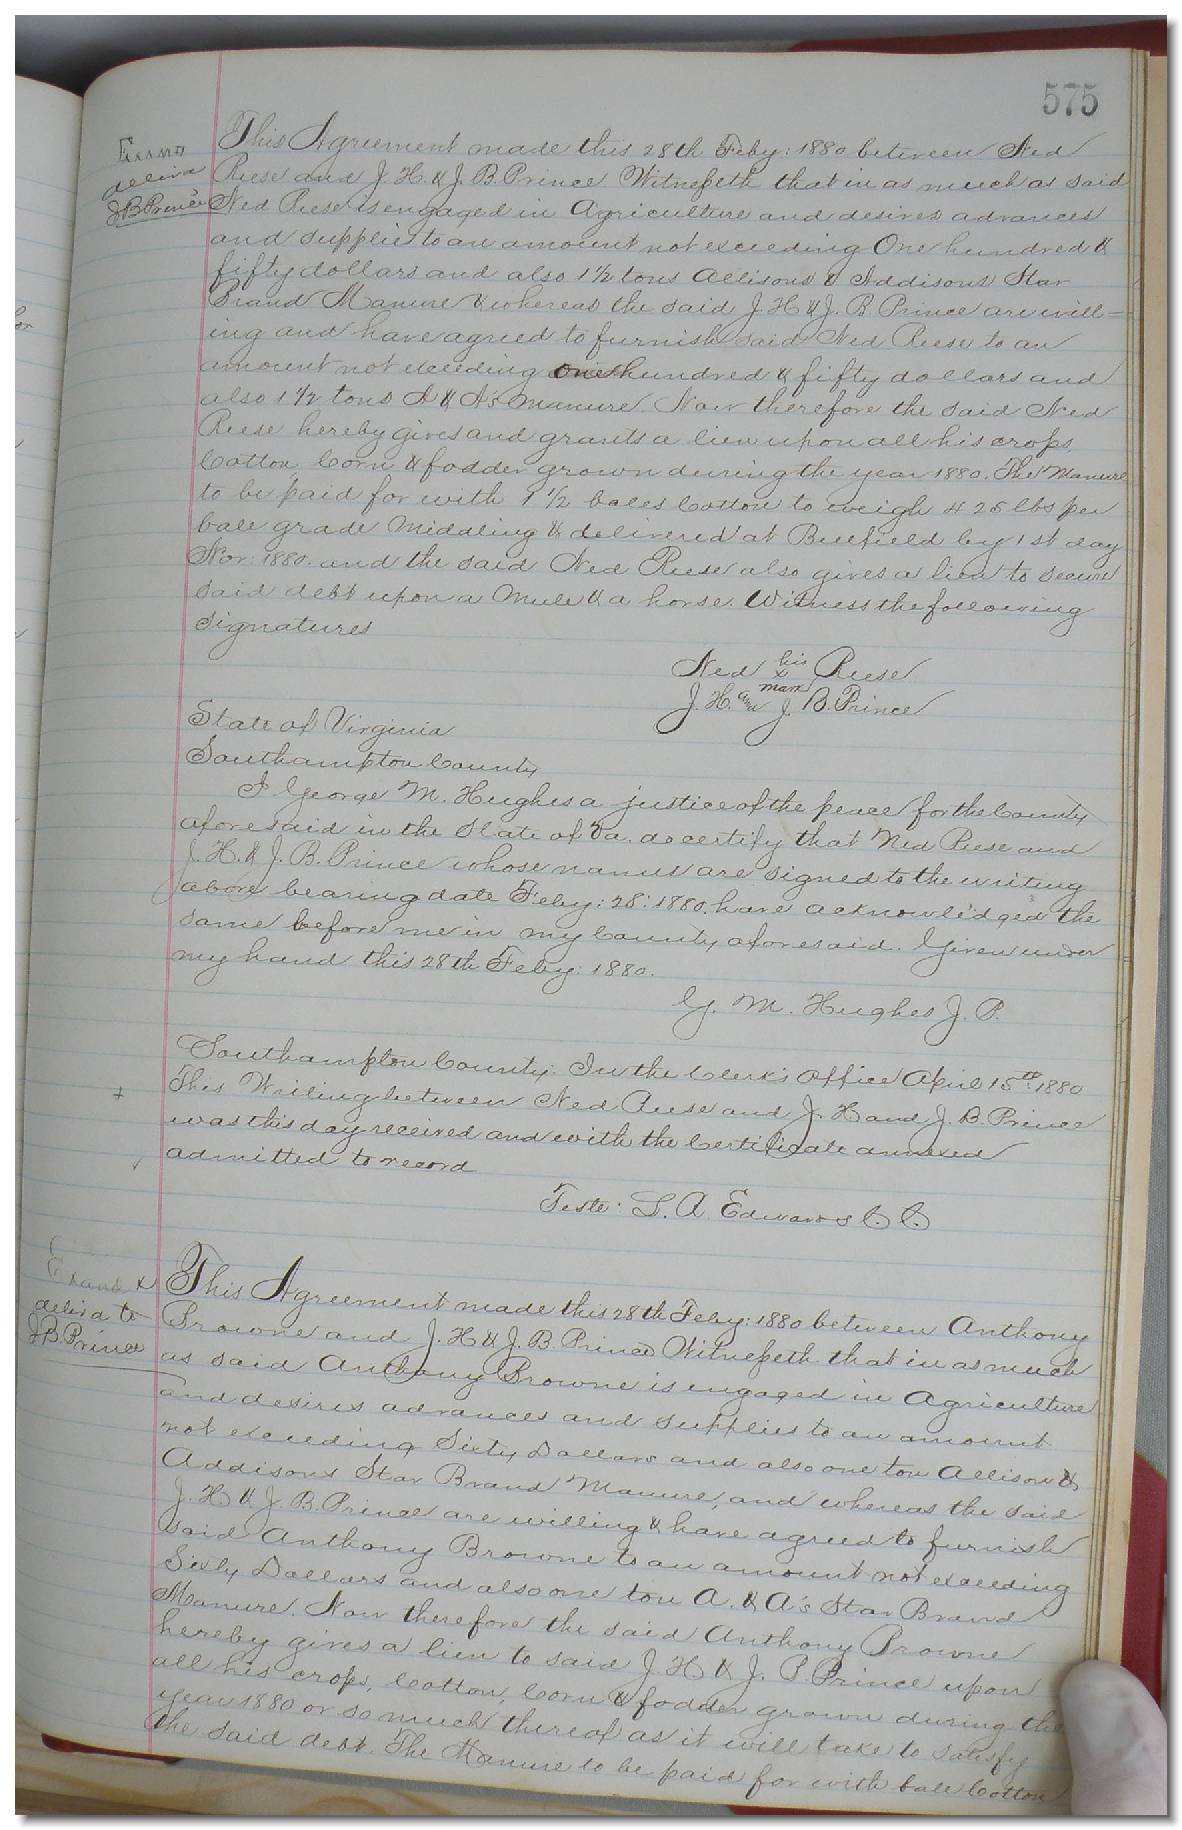 575
Examd
delivd
J B Prince
This Agreement made this 28th Feby: 1880 between Ned
Reese and J. H. & J. B. Prince Witnesseth that in as much as said
Ned Reese is engaged in Agriculture and desires advances
and supplies to an amount not exceeding One hundred &
fifty dollars and also 1 1/2 tons Allisons & Addisons Star
Brand Manure & whereas the said J. H & J. B Prince are will=
ing and have agreed to furnish said Ned Reese to an
amount not exceeding one hundred & fifty dollars and
also 1 1/2 tons A & A's Manure. Now therefore the said Ned
Reese hereby gives and grants a lien upon all his crops,
Cotton, Corn & fodder grown during the year 1880. The Manure
to be paid for with 1 1/2 bales Cotton to weigh 425 lbs per
bale grade Middling & delivered at by 1st day
Nov. 1880. and the said Ned Reese also gives a lien to secure
said debt upon a Mule & a horse. Witness the following
signatures
Ned his x mark Reese
J. H. and J. B. Prince
State of Virginia
Southampton County
I George M. Hughes a justice of the peace for the County
aforesaid in the State of Va. do certify that Ned Reese and
J. H. & J. B. Prince whose names are signed to the writing
above bearing date Feby: 28: 1880. have acknowledged the
same before me in my County aforesaid. Given under
my hand this 28th Feby: 1880.
G. M. Hughes J. P.
Southampton County. In the Clerk's Office April 15th 1880
This Writing between Ned Reese and J. H and J. B. Prince
was this day received and with the Certificate annexed
admitted to record
Teste: L. A. Edwards C. C.
Examd &
delivd to
J. B. Prince
This Agreement made this 28th Feby: 1880 between Anthony
Browne and J. H & J. B. Prince Witnesseth that in as much
as said Anthony Browne is engaged in Agriculture
and desires advances and supplies to an amount
not exceeding Sixty Dollars and also one ton Allison &
Addisons Star Brand Manure, and whereas the said
J. H. & J. B. Prince are willing & have agreed to furnish
said Anthony Browne to an amount not exceeding
Sixty Dollars and also one ton A. & A's Star Brand
Manure. Now therefore the said Anthony Browne
hereby gives a lien to said J. H & J. B Prince upon
all his crops, Cotton, Corn & fodder grown during the
year 1880 or so much thereof as it will take to satisfy
the said debt. The Manure to be paid for with bale Cotton